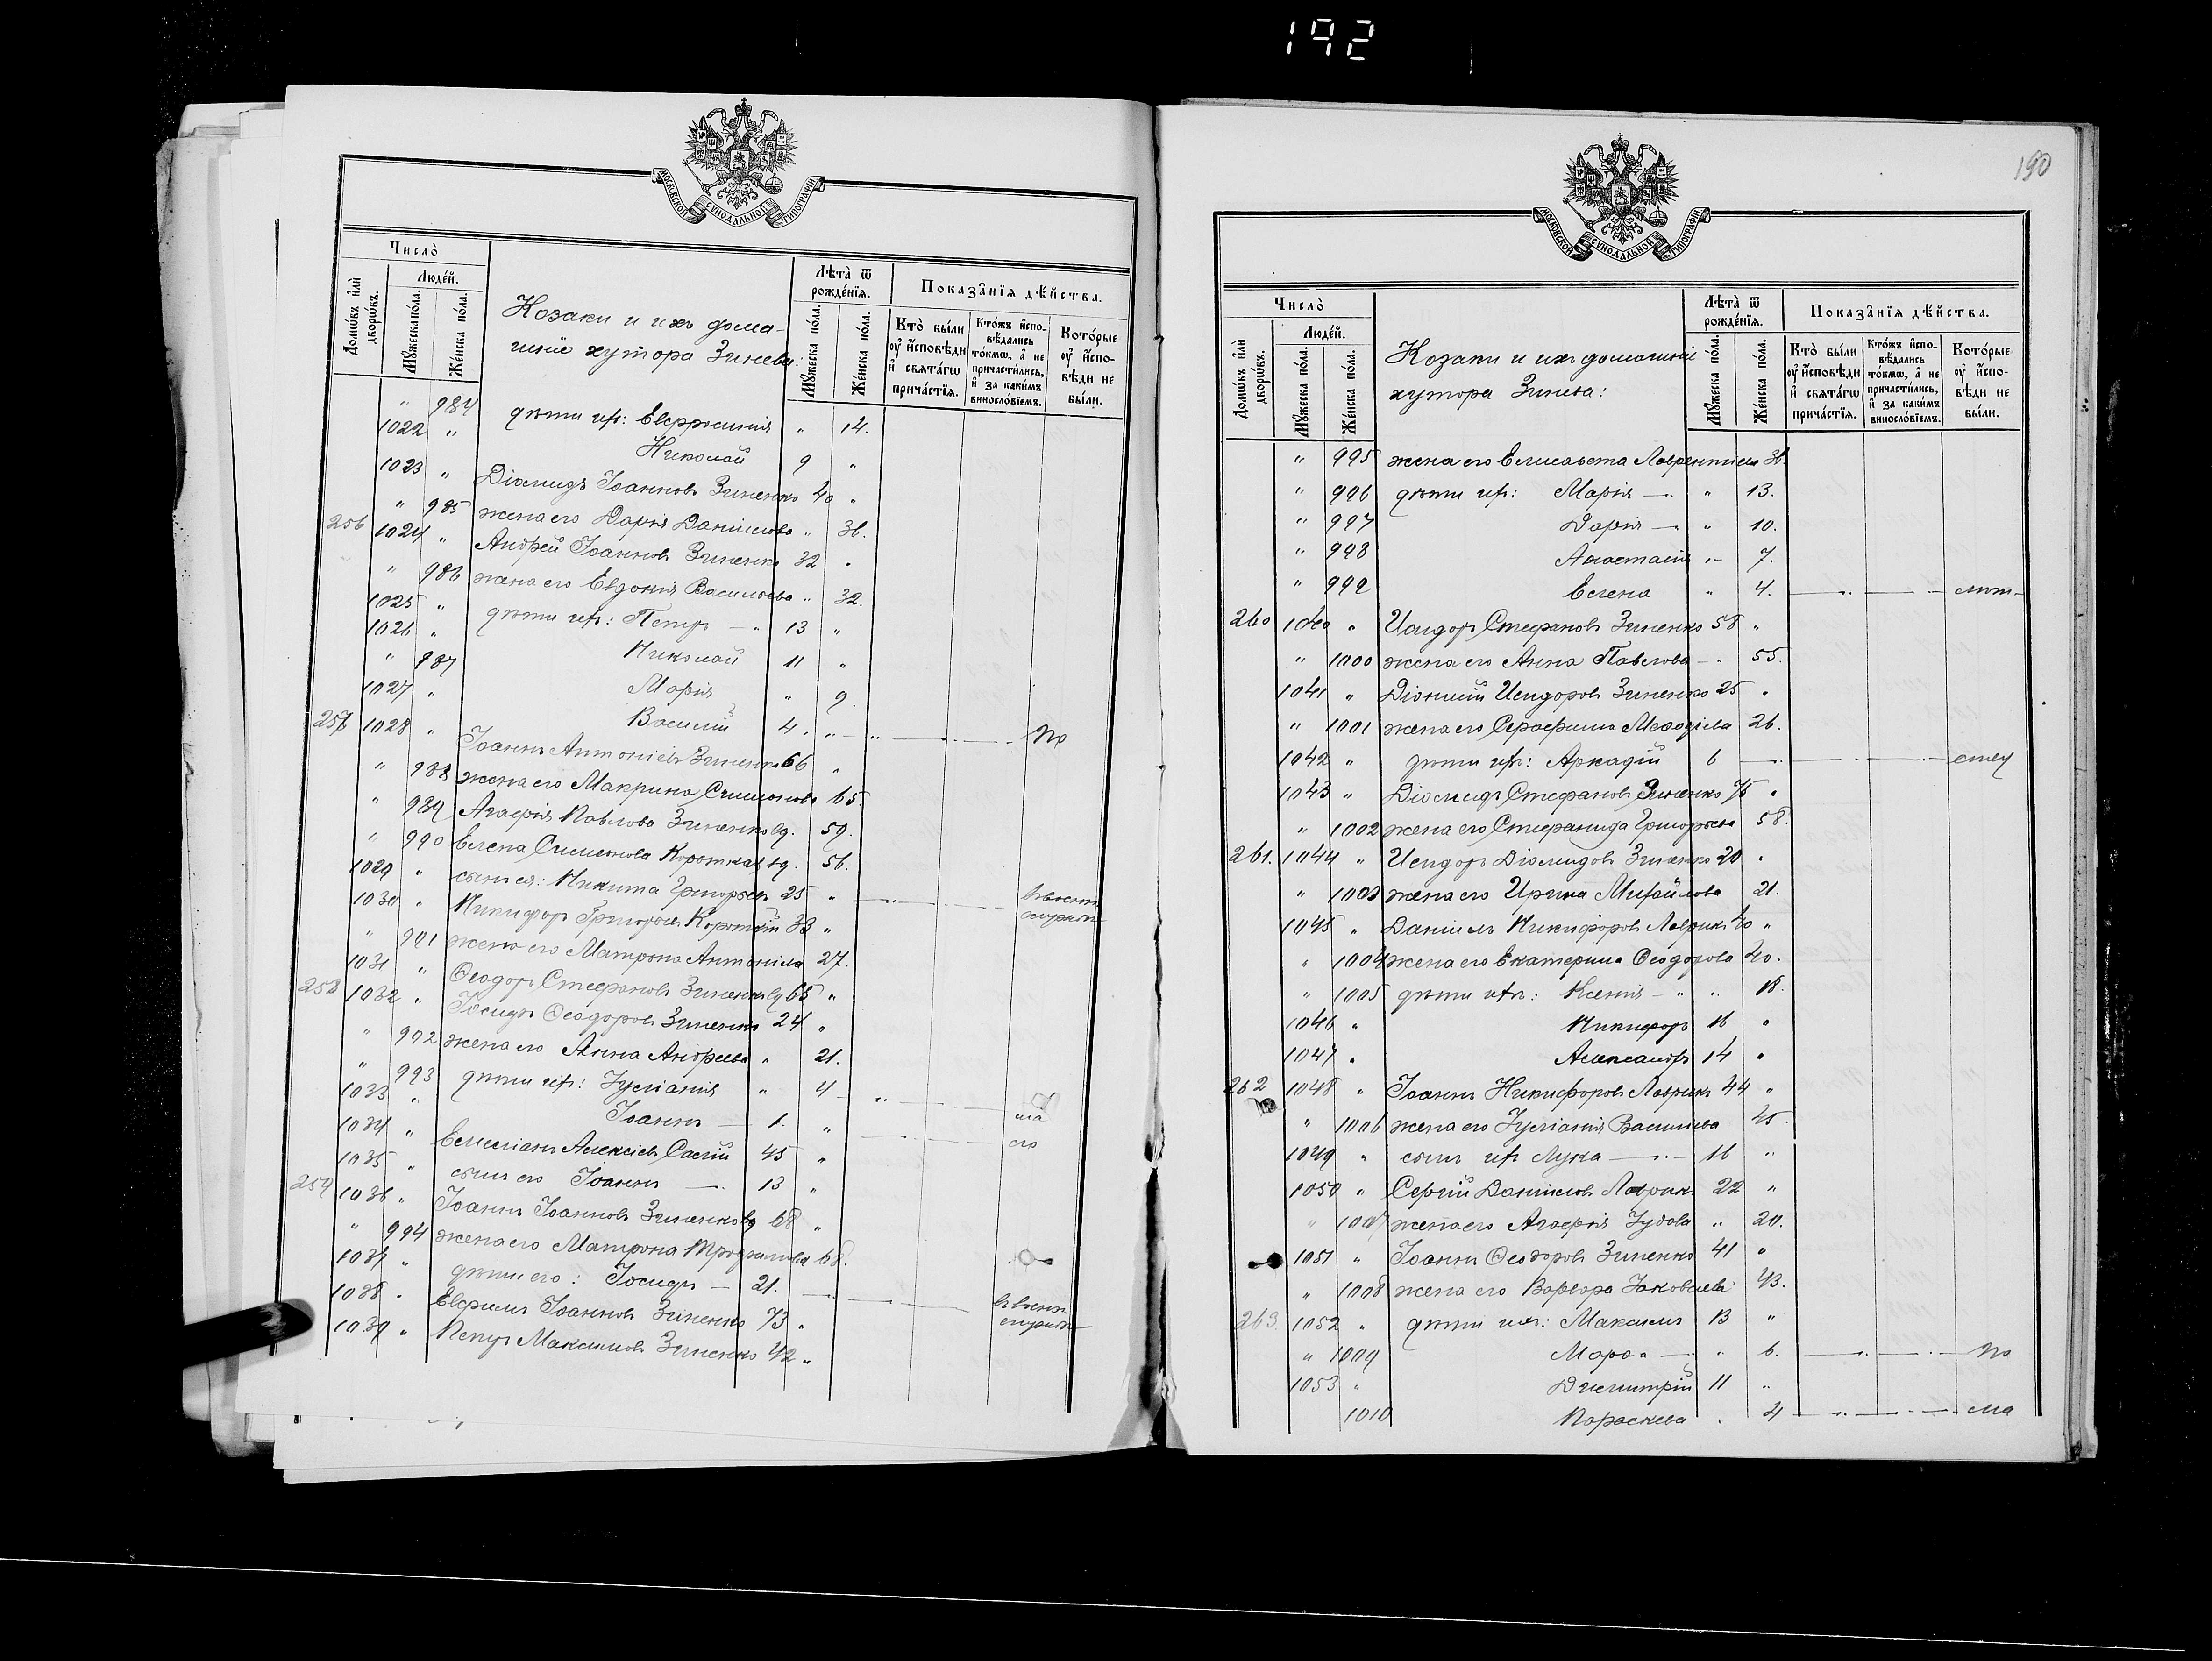 192
МОСКОВСКОЙ СѴНОДАЛЬНОЙ ТИПОГРАФІИ
Число̀
Домѡ́въ и҆лѝ дворѡ́въ.
Люде́й.
Мꙋ́жеска по́ла.
Же́нска по́ла.
Козаки и ихъ дома-
шніе хутора Зинева:
Лѣта̀ ѿ рожде́нїѧ.
Мꙋ́жеска по́ла.
Же́нска по́ла.
Показа̑нїѧ дѣ́йства.
Кто̀ бы́ли оу҆ и҆сповѣ́ди и҆ свѧта́гѡ прича́стїѧ.
Кто́жъ и҆спо- вѣ́дались то́кмѡ, а҆ не причасти́лись, и҆ за каки́мъ винословїемъ.
Кото́рые оу҆ и҆спо- вѣ́ди не бы́ли.
" 984 дѣти ихъ: Евфросинія " 14.
1022 " Николай 9 "
1023 " Діомидъ Іоанновъ Зиненко 40 "
" 985 жена его Дарія Даніилова " 36.
256 1024 " Андрей Іоанновъ Зиненко 32 "
" 986 жена его Евдокія Васильева " 32.
1025 " дѣти ихъ: Петръ — " 13 "
1026 " Николай 11 "
" 987 Марія " 9
1027 " Василій 4 "
257 1028 " Іоаннъ Антоніевъ Зиненко 66 "
" 988 жена его Макрина Симонова 65.
" 989 Агафія Павлова Зиненко вд. 59.
" 990 Елена Симонова Короткая вд. 56.
1029 " сынъ ея: Никита Григорьевъ 25 "
1030 " Никифоръ Григорьевъ Короткій 33 "
" 991 жена его Матрона Антоніева 27.
1031 " Ѳеодоръ Стефановъ Зиненко вд 65 "
258 1032 " Іосифъ Ѳеодоровъ Зиненко 24 "
" 992 жена его Анна Андреева " 21.
" 993 дѣти ихъ: Іуліанія " 4
1033 " Іоаннъ — 1. "
1034 " Емиліанъ Алексіевъ Салій 45 "
1035 " сынъ его Іоаннъ — 13 "
259 1036 " Іоаннъ Іоанновъ Зиненко вд 68 "
" 994 жена его Матрона Трофимова 68.
1037 " дѣти его: Іосифъ — 21.
1038 " Ефремъ Іоанновъ Зиненко 73 "
1039 " Петръ Максимовъ Зиненко 42 "
190
МОСКОВСКОЙ СѴНОДАЛЬНОЙ ТИПОГРАФІИ
Число̀
Домѡ́въ и҆лѝ дворѡ́въ.
Люде́й.
Мꙋ́жеска по́ла.
Же́нска по́ла.
Козаки и ихъ домашніе
хутора Зинева:
Лѣта̀ ѿ рожде́нїѧ.
Мꙋ́жеска по́ла.
Же́нска по́ла.
Показа̑нїѧ дѣ́йства.
Кто̀ бы́ли оу҆ и҆сповѣ́ди и҆ свѧта́гѡ прича́стїѧ.
Кто́жъ и҆спо- вѣ́дались то́кмѡ, а҆ не причасти́лись, и҆ за каки́мъ винословїемъ.
Кото́рые оу҆ и҆спо- вѣ́ди не бы́ли.
" 995 жена его Елисавета Лаврентіева 36.
" 996 дѣти ихъ: Марія — " 13.
" 997 Дарія — " 10.
" 998 Анастасія " 7.
" 999 Елена " 4.
260 1040 " Исидоръ Стефановъ Зиненко 58 "
" 1000 жена его Анна Павлова — 55.
1041 " Діонисій Исидоровъ Зиненко 25 "
" 1001 жена его Серафима Меѳодіева 26.
1042 " дѣти ихъ: Аркадій 6
1043 " Діомидъ Стефановъ Зиненко 75 "
" 1002 жена его Стефанида Григорьева 58.
261. 1044 " Исидоръ Діомидовъ Зиненко 20 "
" 1003 жена его Ирина Михайлова 21.
1045 " Даніилъ Никифоровъ Лаврикъ 40 "
" 1004 жена его Екатерина Ѳеодорова 40.
" 1005 дѣти ихъ: Ксенія — " 18.
1046 " Никифоръ 16 "
1047 " Александръ 14 "
262 1048 " Іоаннъ Никифоровъ Лаврикъ 44 "
" 1006 жена его Іуліанія Васильева 45.
1049 " сынъ ихъ Лука — 16 "
1050 " Сергій Даніиловъ Лаврикъ 22 "
" 1007 жена его Агафія Іудова " 20.
1051 " Іоаннъ Ѳеодоровъ Зиненко 41 "
" 1008 жена его Варвара Іаковлева 43.
263. 1052 " дѣти ихъ: Максимъ 13 "
" 1009 " 6.
1053 " Димитрій 11 "
1010 Параскева " 4